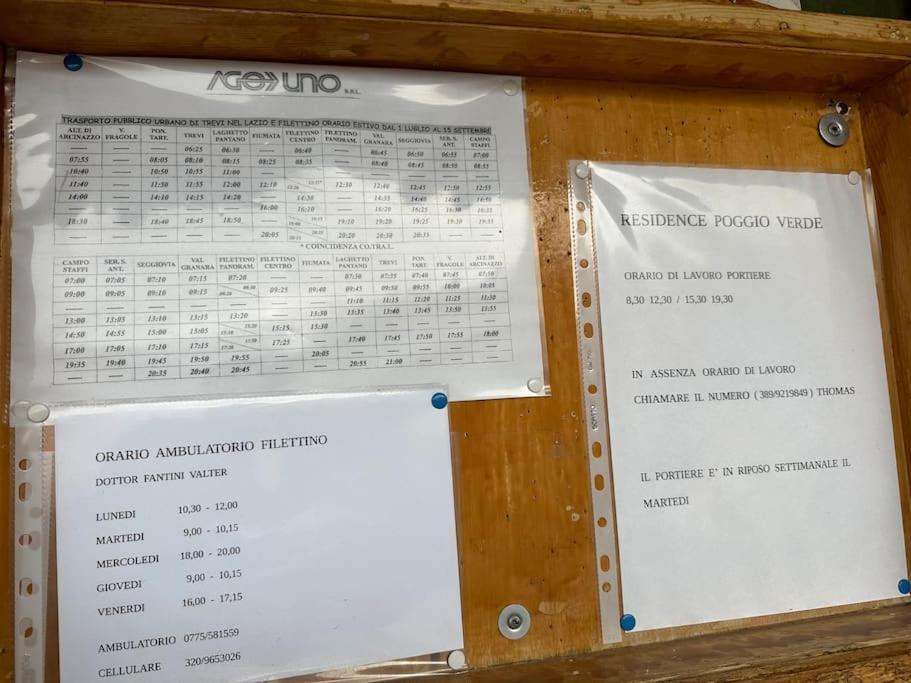 AGO UNO S.R.L.
TRASPORTO PUBBLICO URBANO DI TREVI NEL LAZIO E FILETTINO ORARIO ESTIVO DAL 1 LUGLIO AL 15 SETTEMBRE
ALT. DI ARCINAZZO V. FRAGOLE PON. TART. TREVI LAGHETTO PANTANO FIUMATA FILETTINO CENTRO FILETTINO PANORAM. VAL GRANARA SEGGIOVIA SER. S. ANT. CAMPO STAFFI
— — — 06:25 06:30 — 06:40 — 06:45 06:50 06:55 07:00
07:55 — 08:05 08:10 08:15 08:25 08:35 — 08:40 08:45 08:50 08:55
10:40 — 10:50 10:55 11:00
11:40 — 11:50 11:55 12:00 12:10 12:30 12:40 12:45 12:50 12:55
14:00 — 14:10 14:15 14:20 — 14:30 — 14:35 14:40 14:45 14:50
— — — — — 16:00 16:10 — 16:20 16:25 16:30 16:35
18:30 — 18:40 18:45 18:50 — 19:10 19:20 19:25 19:30 19:35
— — — — — 20:05 20:20 20:30 20:35 — —
* COINCIDENZA CO.TRA.L.
CAMPO STAFFI SER. S. ANT. SEGGIOVIA VAL GRANARA FILETTINO PANORAM. FILETTINO CENTRO FIUMATA LAGHETTO PANTANO TREVI PON. TART. V. FRAGOLE ALT. DI ARCINAZZO
07:00 07:05 07:10 07:15 07:20 — — 07:30 07:35 07:40 07:45 07:50
09:00 09:05 09:10 09:15 09:25 09:40 09:45 09:50 09:55 10:00 10:05
— — — — — — — 11:10 11:15 11:20 11:25 11:30
13:00 13:05 13:10 13:15 13:20 — 13:30 13:35 13:40 13:45 13:50 13:55
14:50 14:55 15:00 15:05 15:15 15:30 — — — — —
17:00 17:05 17:10 17:15 17:25 — 17:40 17:45 17:50 17:55 18:00
19:35 19:40 19:45 19:50 19:55 — 20:05 — — — — —
— — 20:35 20:40 20:45 — — 20:55 21:00 — — —
ORARIO AMBULATORIO FILETTINO
DOTTOR FANTINI VALTER
LUNEDI 10,30 - 12,00
MARTEDI 9,00 - 10,15
MERCOLEDI 18,00 - 20,00
GIOVEDI 9,00 - 10,15
VENERDI 16,00 - 17,15
AMBULATORIO 0775/581559
CELLULARE 320/9653026
RESIDENCE POGGIO VERDE
ORARIO DI LAVORO PORTIERE
8,30 12,30 / 15,30 19,30
IN ASSENZA ORARIO DI LAVORO
CHIAMARE IL NUMERO ( 389/9219849 ) THOMAS
IL PORTIERE E' IN RIPOSO SETTIMANALE IL
MARTEDI